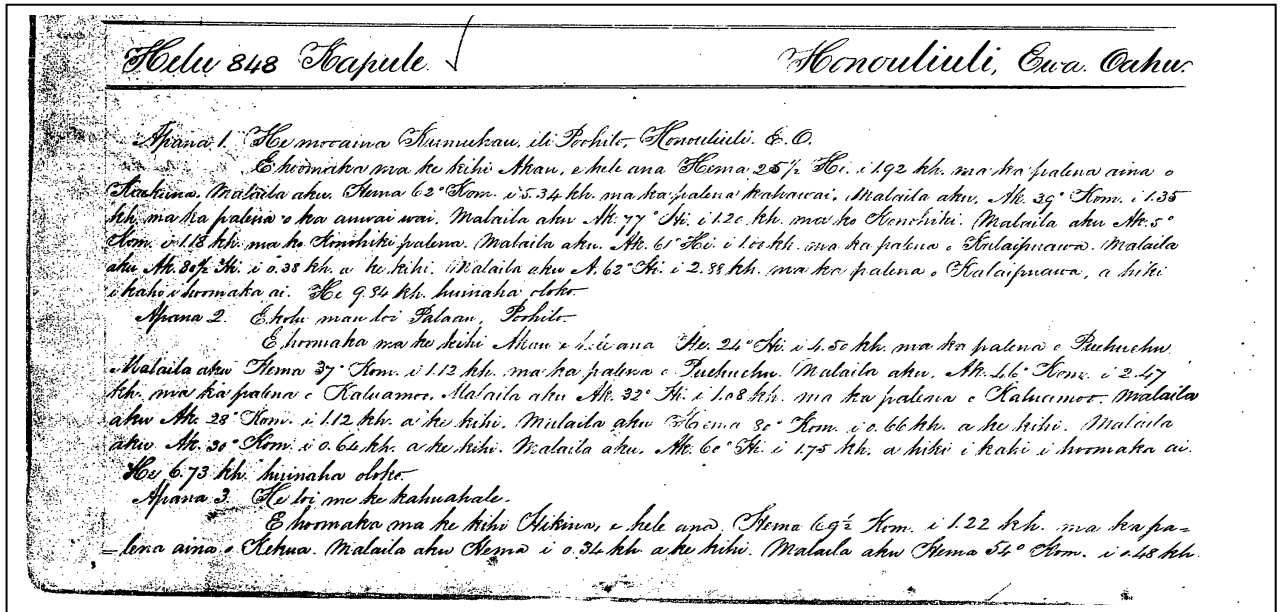 Helu 848 Kapule. Honouliuli, Ewa. Oahu.
Apana 1. He mooaina Kumuhau, ili Poohilo, Honouliuli. E. O.
E hoomaka ma ke kihi Akau, e hele ana Hema 25 1/2 Hi. i 1.92 kh. ma ka palena aina o
Kaakina. Malaila aku. Hema 62° Kom. i 5.34 kh. ma ka palena kahawai. Malaila aku. Ak. 39° Kom. i 1.35
kh. ma ka palena o ka auwai wai. Malaila aku Ak. 77° Hi. i 1.20 kh. ma ko Konohiki. Malaila aku Ak. 5°
Kom. i 1.18 kh. ma ko Konohiki palena. Malaila aku. Ak. 61° Hi. i kh. ma ka palena o Kalaipuawa. Malaila
aku Ak. 80 1/2 Hi. i 0.38 kh. a ke kihi. Malaila aku A. 62° Hi. i 2.88 kh. ma ka palena o Kalaipuawa, a hiki
i kahi i hoomaka ai. He 9.84 kh. huinaha oloko.
Apana 2. Ekolu mau loi Palaau, Poohilo.
E hoomaka ma ke kihi Akau e hele ana He. 24° Hi. i 4.50 kh. ma ka palena o Puehuehu
Malaila aku Hema 37° Kom. i 1.12 kh. ma ka palena o Puehuehu. Malaila aku. Ak. 46° Kom. i 2.47
kh. ma ka palena o Kaluamoo. Malaila aku Ak. 32° Hi. i 1.08 kh. ma ka palena o Kaluamoo. Malaila
aku Ak. 28° Kom. i 1.12 kh. a ke kihi. Malaila aku Hema 80° Kom. i 0.66 kh. a ke kihi. Malaila
aku Ak. 30° Kom. i 0.64 kh. a ke kihi. Malaila aku. Ak. 60° Hi. i 1.75 kh. a hiki i kahi i hoomaka ai.
He 6.73 kh. huinaha oloko.
Apana 3. He loi me ke kahuahale.
E hoomaka ma ke kihi Hikina, e hele ana. Hema 69 1/2 Kom. i 1.22 kh. ma ka pa=
=lena aina o Kekua. Malaila aku Hema i 0.34 kh a ke kihi. Malaila aku Hema 54° Kom. i 0.48 kh.